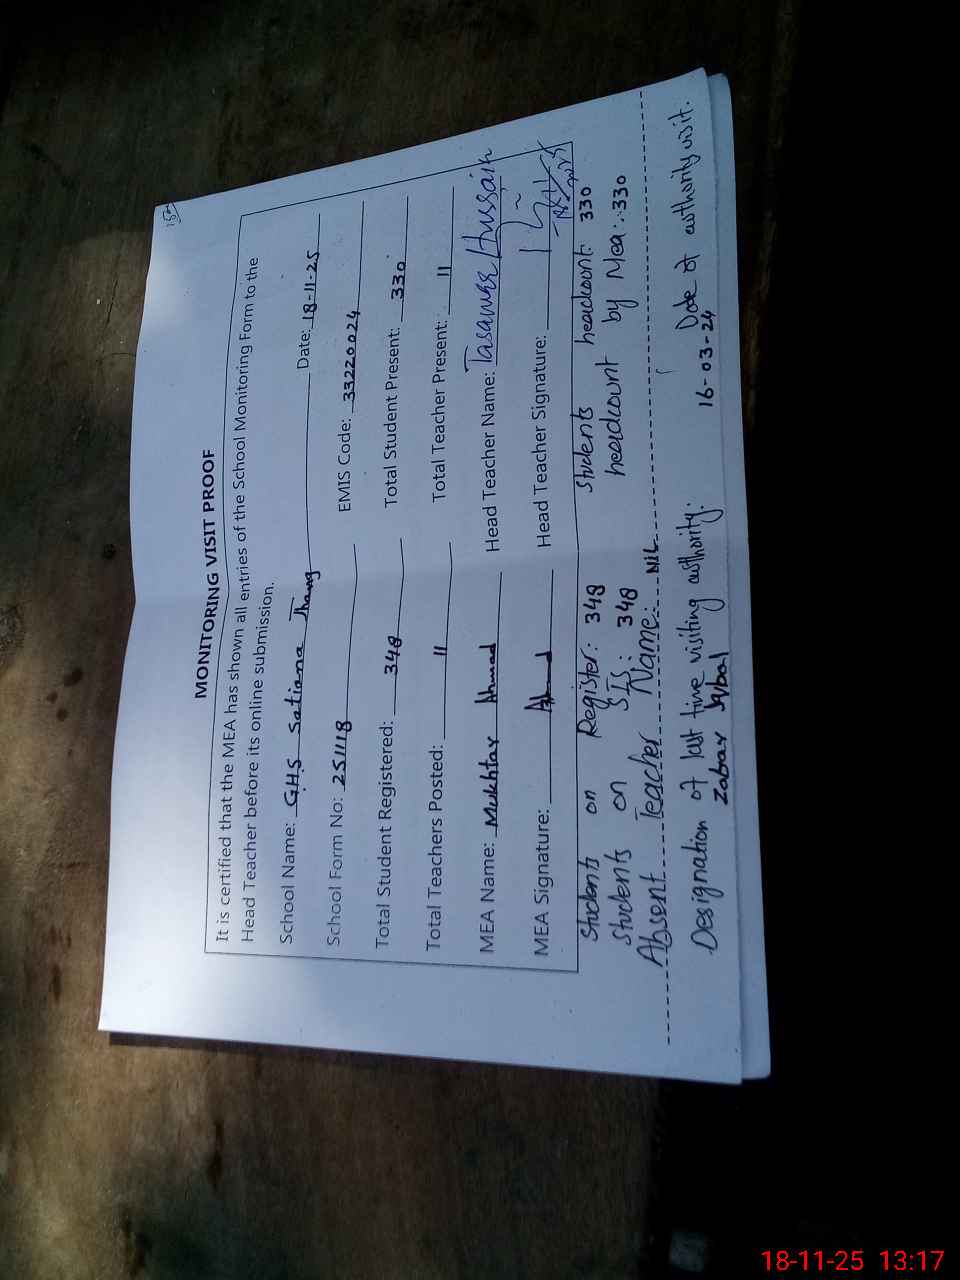 MONITORING VISIT PROOF
It is certified that the MEA has shown all entries of the School Monitoring Form to the
Head Teacher before its online submission.
School Name: G.H.S Satiana Jhang Date: 18-11-25
School Form No: 251118 EMIS Code: 33220024
Total Student Registered: 348 Total Student Present: 330
Total Teachers Posted: 11 Total Teacher Present: 11
MEA Name: Mukhtar Ahmad Head Teacher Name: Tasawar Hussain
MEA Signature: Head Teacher Signature:
Students on Register: 348 Students headcount: 330
Students on SIS: 348 headcount by Mea: 330
Absent Teacher Name: NIL
Designation of last time visiting authority: Date of authority visit.
Zabar Iqbal 16-03-24
18-11-25 13:17